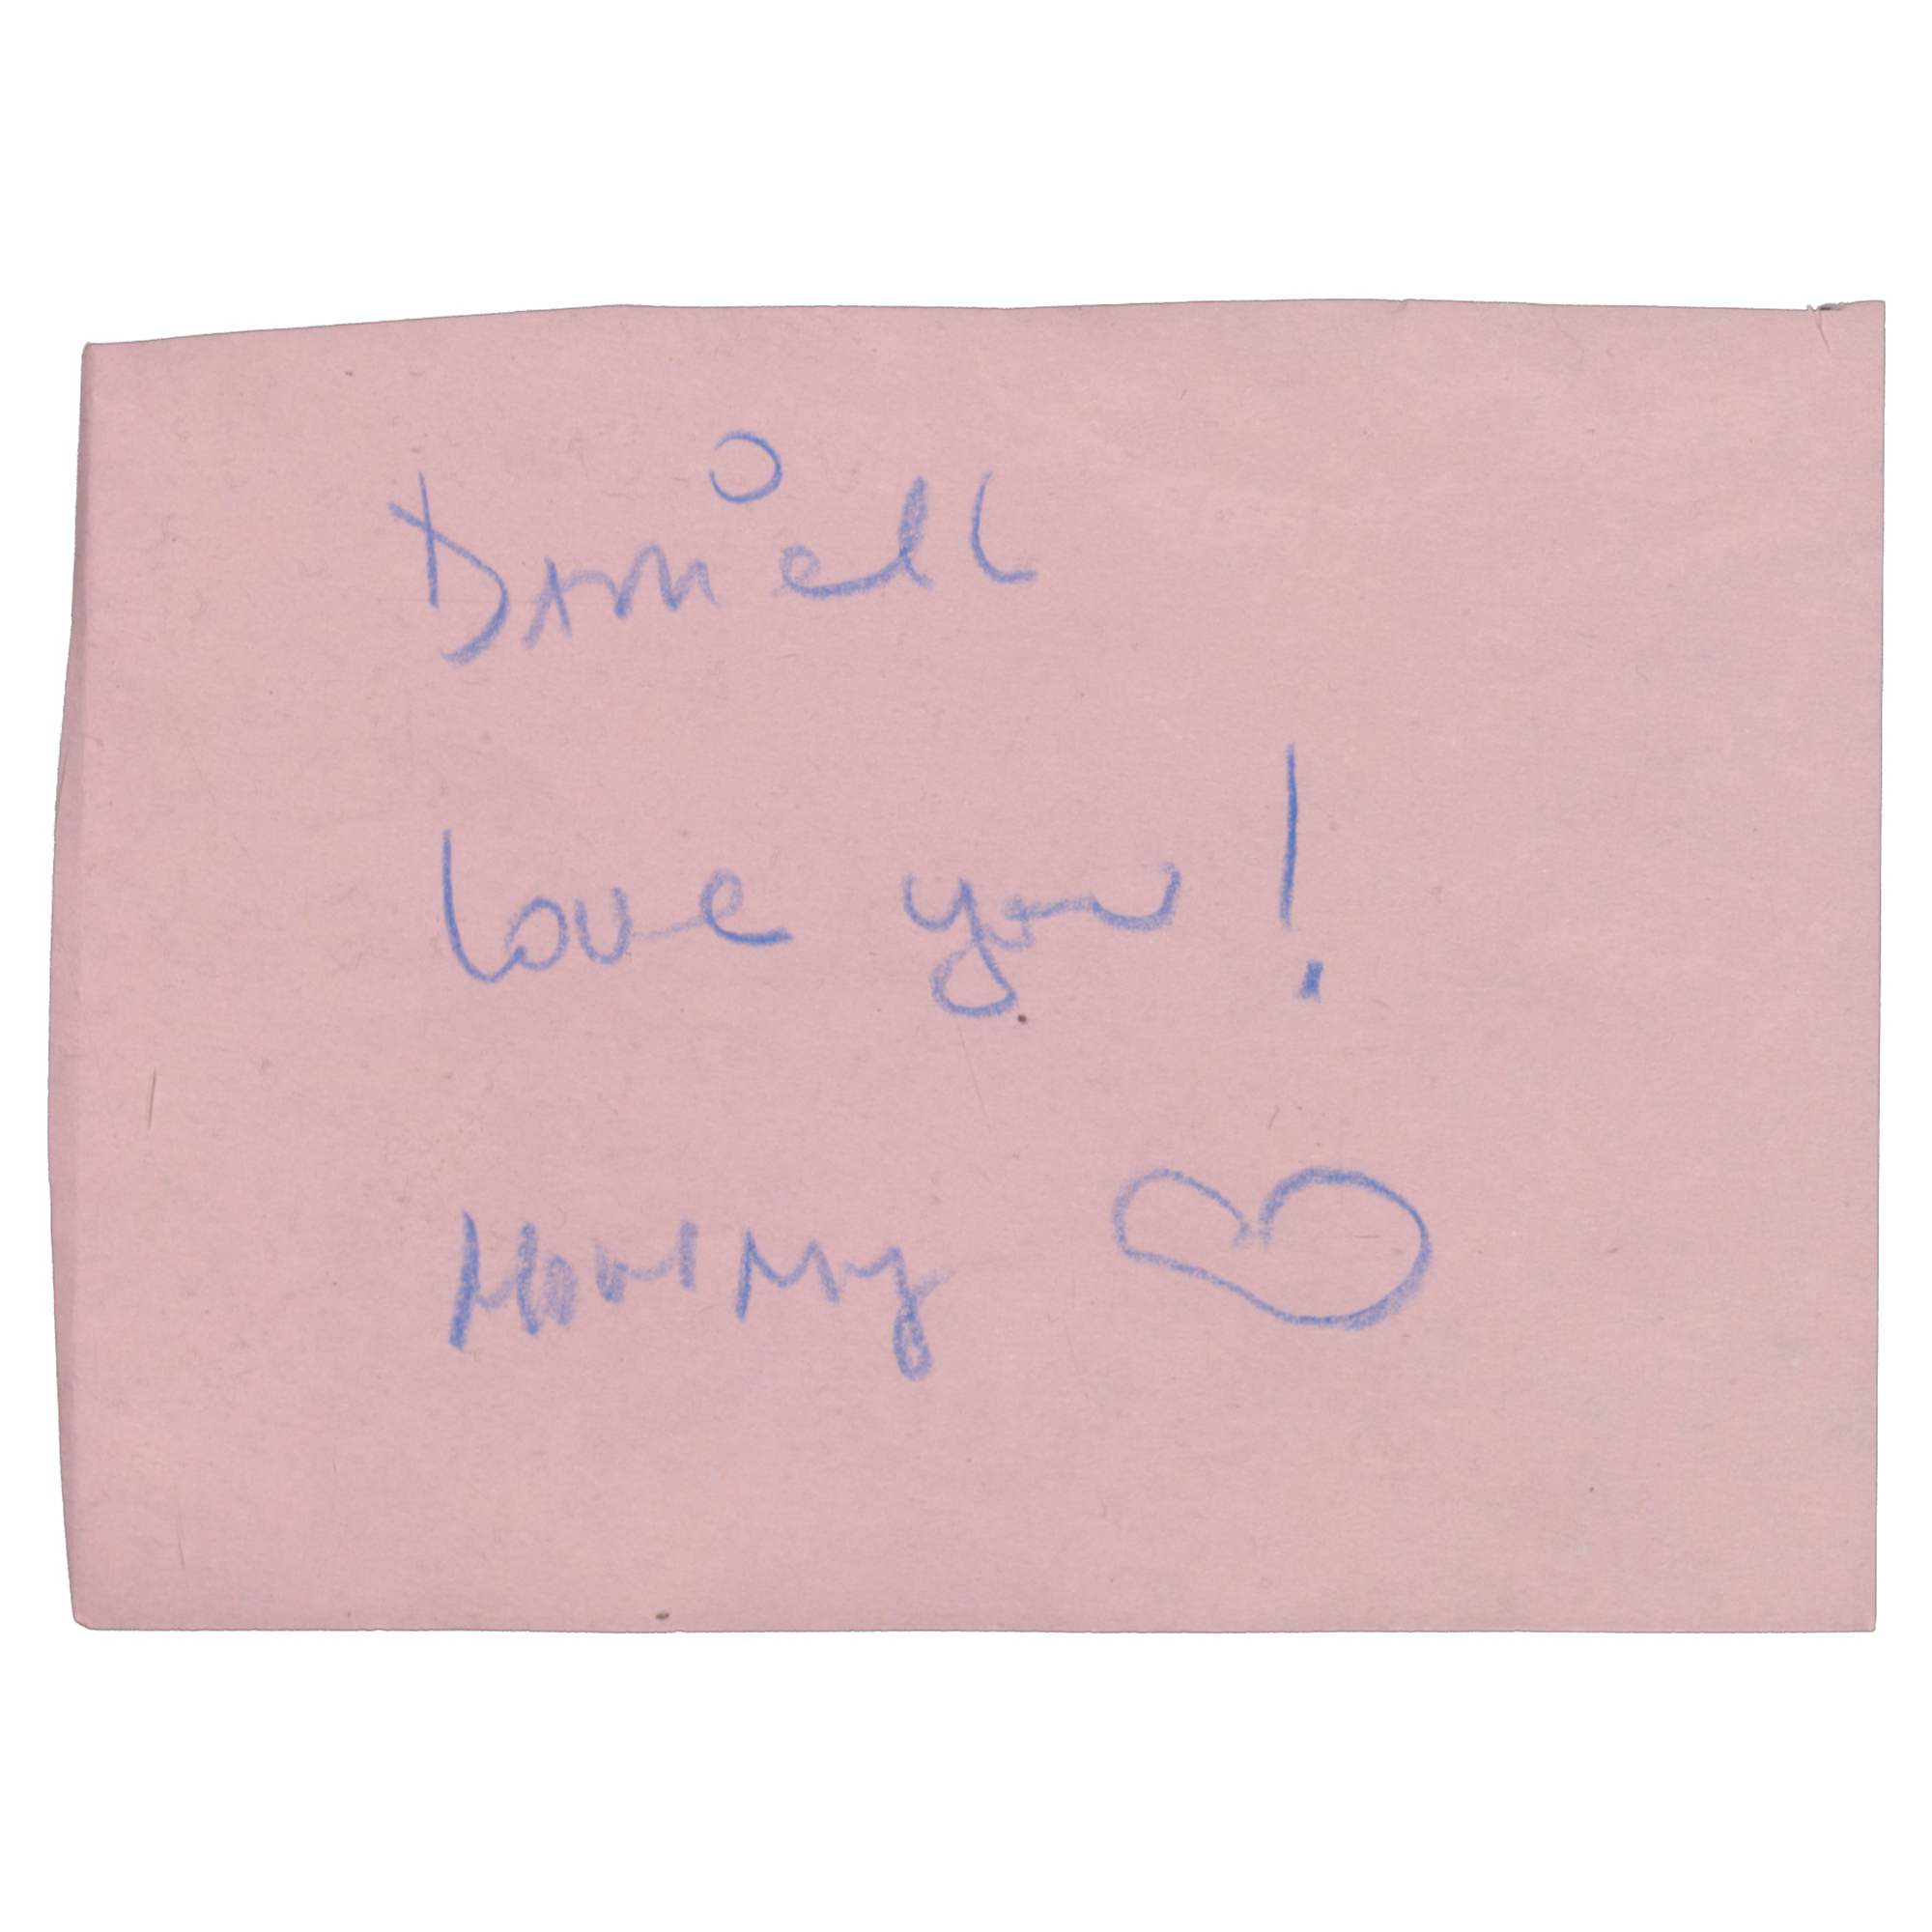 Daniell
love you!
Mommy